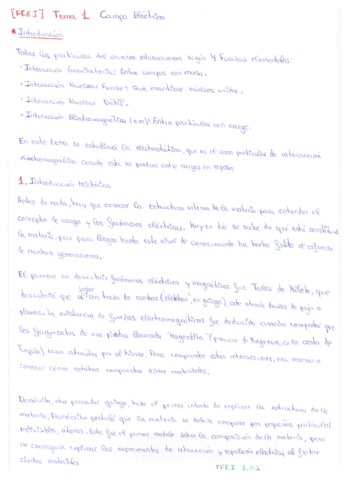 [FFE I] Tema 1 Campo Eléctrico
* Introducción
Todas las partículas del universo interaccionan según 4 fuerzas elementales:
• Interacción Gravitatoria: Entre cuerpos con masa.
• Interacción Nuclear Fuerte: Que mantiene núcleos unidos.
• Interacción Nuclear Débil.
• Interacción Electromagnética (em): Entre partículas con carga.
En este tema se estudiará la electrostática, que es el caso particular de interacción
electromagnética cuando esta se produce entre cargas en reposo.
1. Introducción Histórica
Antes de nada, hay que conocer la estructura interna de la materia para entender el
concepto de carga y los fenómenos eléctricos. Hoy en día se sabe de qué está constituida
la materia, pero para llegar hasta este nivel de conocimiento ha hecho falta el esfuerzo
de muchas generaciones.
El primero en descubrir fenómenos eléctricos y magnéticos fue Tales de Mileto, que
descubrió que al frotar trozo de ámbar (elektron, en griego), este atraía trozos de paja o
plumas. La existencia de fuerzas electromagnéticas fue deducida cuando comprobó que
los fragmentos de una piedra llamada "Magnetita" (proviene de Magnesia, en la costa de
Turquía) eran atraídos por el hierro. Para comprender estas interacciones, era necesario
conocer cómo estaban compuestos estos materiales.
Demócrito, otro pensador griego, hizo el primer intento de explicar la estructura de la
materia. Demócrito postuló que la materia se debía componer por pequeñas partículas
indivisibles, átomos. Este fue el primer modelo sobre la composición de la materia, pero
no conseguía explicar los experimentos de atracción y repulsión eléctrica al frotar
ciertos materiales.
FFE I 1.01